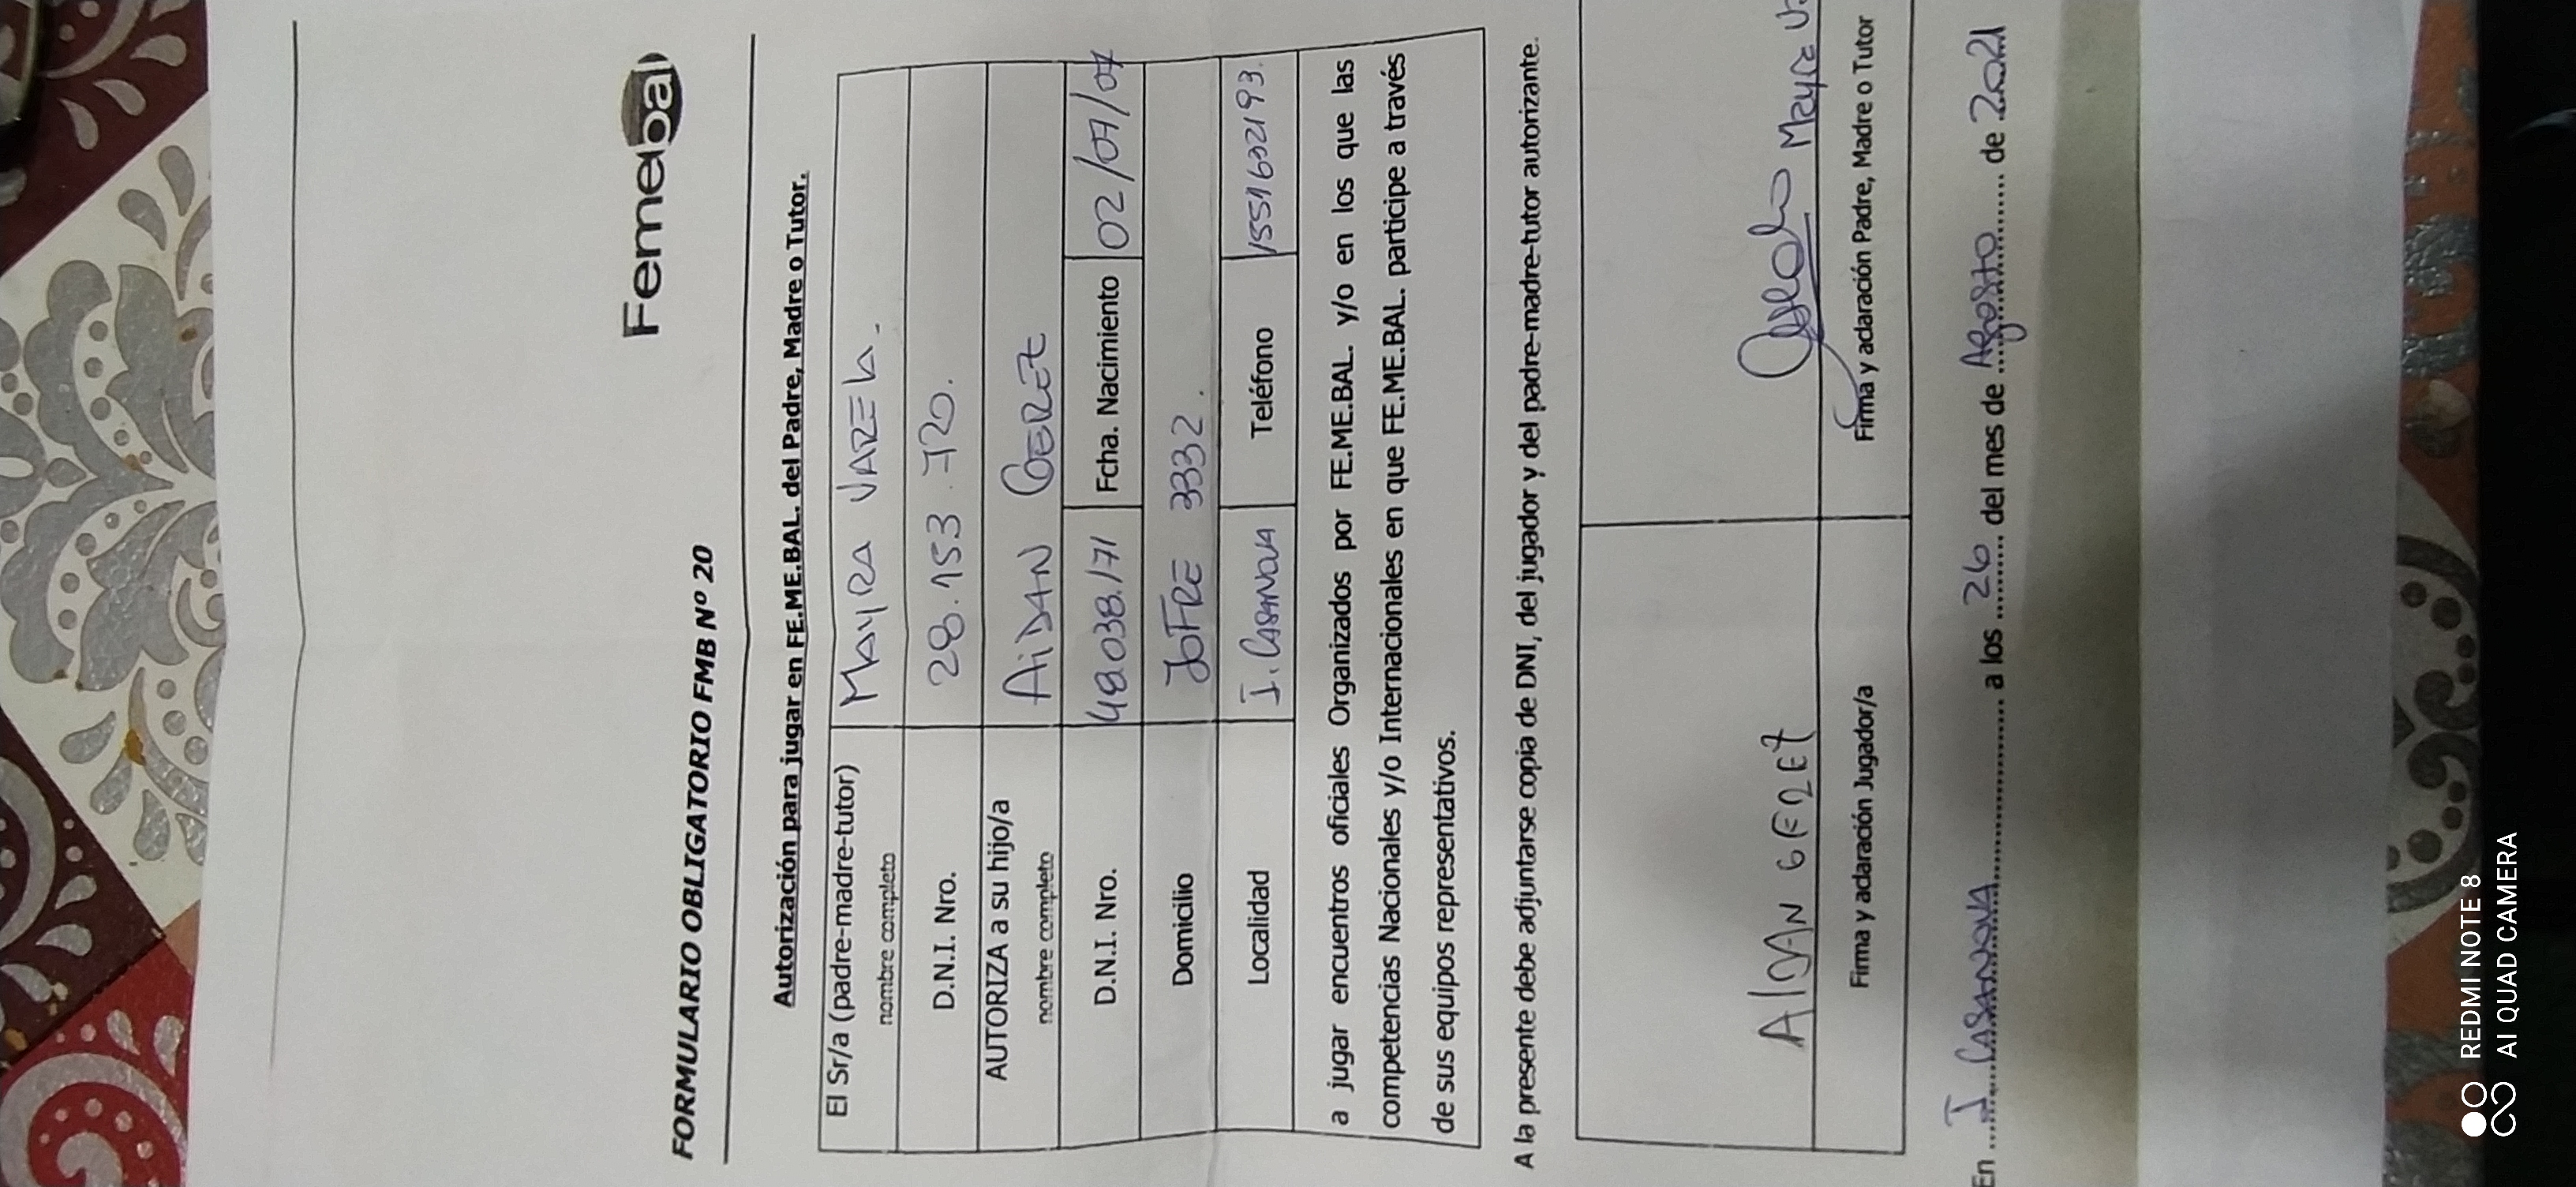 Femebal
FORMULARIO OBLIGATORIO FMB Nº 20
Autorización para jugar en FE.ME.BAL. del Padre, Madre o Tutor.
El Sr/a (padre-madre-tutor) nombre completo MAYRA VARELA.
D.N.I. Nro. 28.153.720.
AUTORIZA a su hijo/a nombre completo AiDAN GEREZ
D.N.I. Nro. 48.038.171 Fcha. Nacimiento 02/07/07
Domicilio JOFRE 3332.
Localidad I. CASANOVA Teléfono 1551632193.
a jugar encuentros oficiales Organizados por FE.ME.BAL. y/o en los que las
competencias Nacionales y/o Internacionales en que FE.ME.BAL. participe a través
de sus equipos representativos.
A la presente debe adjuntarse copia de DNI, del jugador y del padre-madre-tutor autorizante.
AIDAN GEREZ Mayra
Firma y aclaración Jugador/a Firma y aclaración Padre, Madre o Tutor
En I. CASANOVA a los 26 del mes de Agosto de 2021
REDMI NOTE 8
AI QUAD CAMERA